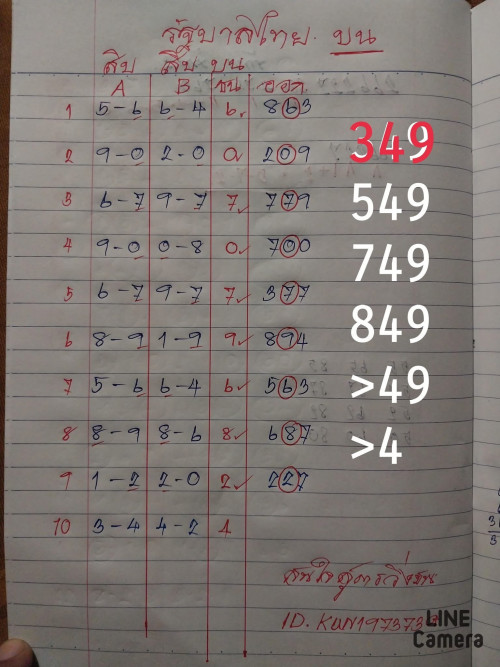 รัฐบาลไทย. บน
สิบ สิบ บน
A B ชน ออก
1 5-6 6-4 6. 863
2 9-0 2-0 0. 209
3 6-7 9-7 7✓ 779
4 9-0 0-8 0✓ 700
5 6-7 9-7 7✓ 377
6 8-9 1-9 9✓ 894
7 5-6 6-4 6✓ 563
8 8-9 8-6 8✓ 687
9 1-2 2-0 2✓ 227
10 3-4 4-2 4
349
549
749
849
>49
>4
สนใจสูตรวิ่งบน
LINE
Camera